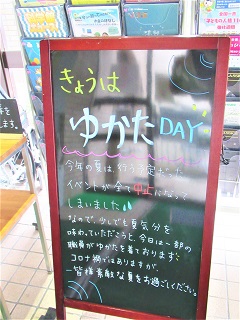 きょうは
ゆかたDAY
今年の夏は、行う予定だった
イベントが全て中止になって
しまいました
なので、少しでも夏気分を
味わっていただこうと、今日は一部の
職員がゆかたを着ております
コロナ禍ではありますが、
皆様素敵な夏をお過ごしください。